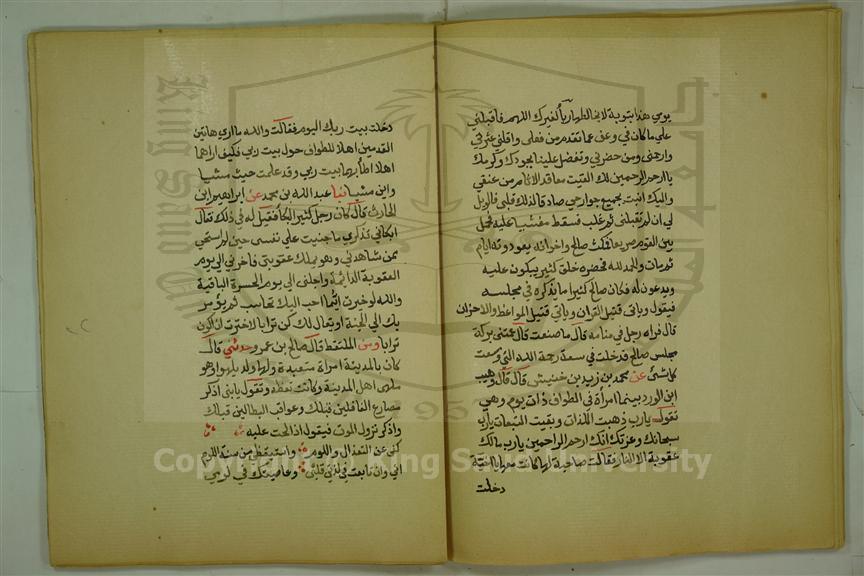 يومي هذا بتوبة لا يخالطها رياء لغيرك اللهم فاقبلني
علي ما كان في وعف عما تقدم من فعلي واقلني عثرتي
وارحمني ومن حضرني وتفضل علينا بجودك وكرمك
يا ارحم الراحمين لك القيت معاقد الاثام من عنقي
واليك انبت بجميع جوارحي صادقا لذلك قلبي فالويل
لي ان لم تقبلني ثم غلب فسقط مغشيا عليه فحمل
بين القوم صريعا فمكث صالح واخوانه يعودونه ايام
ثم مات والحمد لله فحضره خلق كثير يبكون عليه
ويدعون له فكان صالح كثيرا ما يذكره في مجلسه
فيقول وبابي قتيل القران وبابي قتيل المواعظ والاحزان
قال فراه رجل في منامه قال ما صنعت قال عمتني بركة
مجلس صالح فدخلت في سعة رحمة الله التي وسعت
كل شئ عن محمد بن زيد بن خنيش قال قال وهيب
ابن الورد بينما امراة في الطواف ذات يوم وهي
تقول يارب ذهبت اللذات وبقيت التبعات يارب
سبحانك وعزتك انك ارحم الراحمين يارب مالك
عقوبة الا النار فقالت صاحبة لها كانت معها يا اخية
دخلت
دخلت بيت ربك اليوم فقالت والله ما اري هاتين
القدمين اهلا للطواف حول بيت ربي فكيف اراهما
اهلا اطأ بهما بيت ربي وقد علمت حيث مشيا
واين مشيا نبا عبد الله بن محمد عن ابراهيم ابن
الحارث قال كان رجل كثير البكا فقيل له في ذلك فقال
ابكاني تذكري ما جنيت علي نفسي حين لم استحي
ممن شاهدني وهو يملك عقوبتي فاخرني الي يوم
العقوبة الدائمة واجلني الي يوم الحسرة الباقية
والله لو خيرت ايما احب اليك تحاسب ثم يؤمر
بك الي الجنة او يقال لك كن ترابا لاخترت ان اكون
ترابا ومن الملتقط قال صالح بن عمرو حدثني قال
كان بالمدينة امراة متعبدة ولها ولد يلهو وهو
ملهي اهل المدينة وكانت تعظه وتقول يا بني اذكر
مصارع الغافلين قبلك وعواقب البطالين قبلك
واذكر نزول الموت فيقول اذا الحت عليه
كفي عن التعذال واللوم واستيقظي من سنة النوم
اني وان تابعت في لذتي قلبي وعاصيتك في لومي
Copyright © King Saud University
King Saud University
جامعة الملك سعود
1957